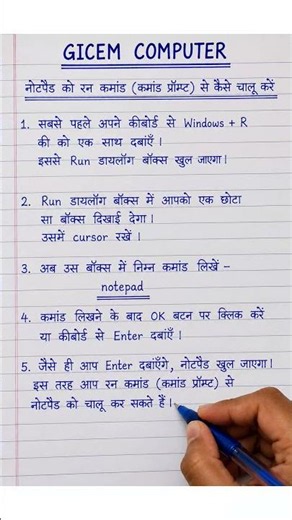 GICEM COMPUTER
नोटपैड को रन कमांड (कमांड प्रॉम्प्ट) से कैसे चालू करें
1. सबसे पहले अपने कीबोर्ड से Windows + R
की को एक साथ दबाएँ।
इससे Run डायलॉग बॉक्स खुल जाएगा।
2. Run डायलॉग बॉक्स में आपको एक छोटा
सा बॉक्स दिखाई देगा।
उसमें cursor रखें।
3. अब उस बॉक्स में निम्न कमांड लिखें –
notepad
4. कमांड लिखने के बाद OK बटन पर क्लिक करें
या कीबोर्ड से Enter दबाएँ।
5. जैसे ही आप Enter दबाएँगे, नोटपैड खुल जाएगा।
इस तरह आप रन कमांड (कमांड प्रॉम्प्ट) से
नोटपैड को चालू कर सकते हैं।